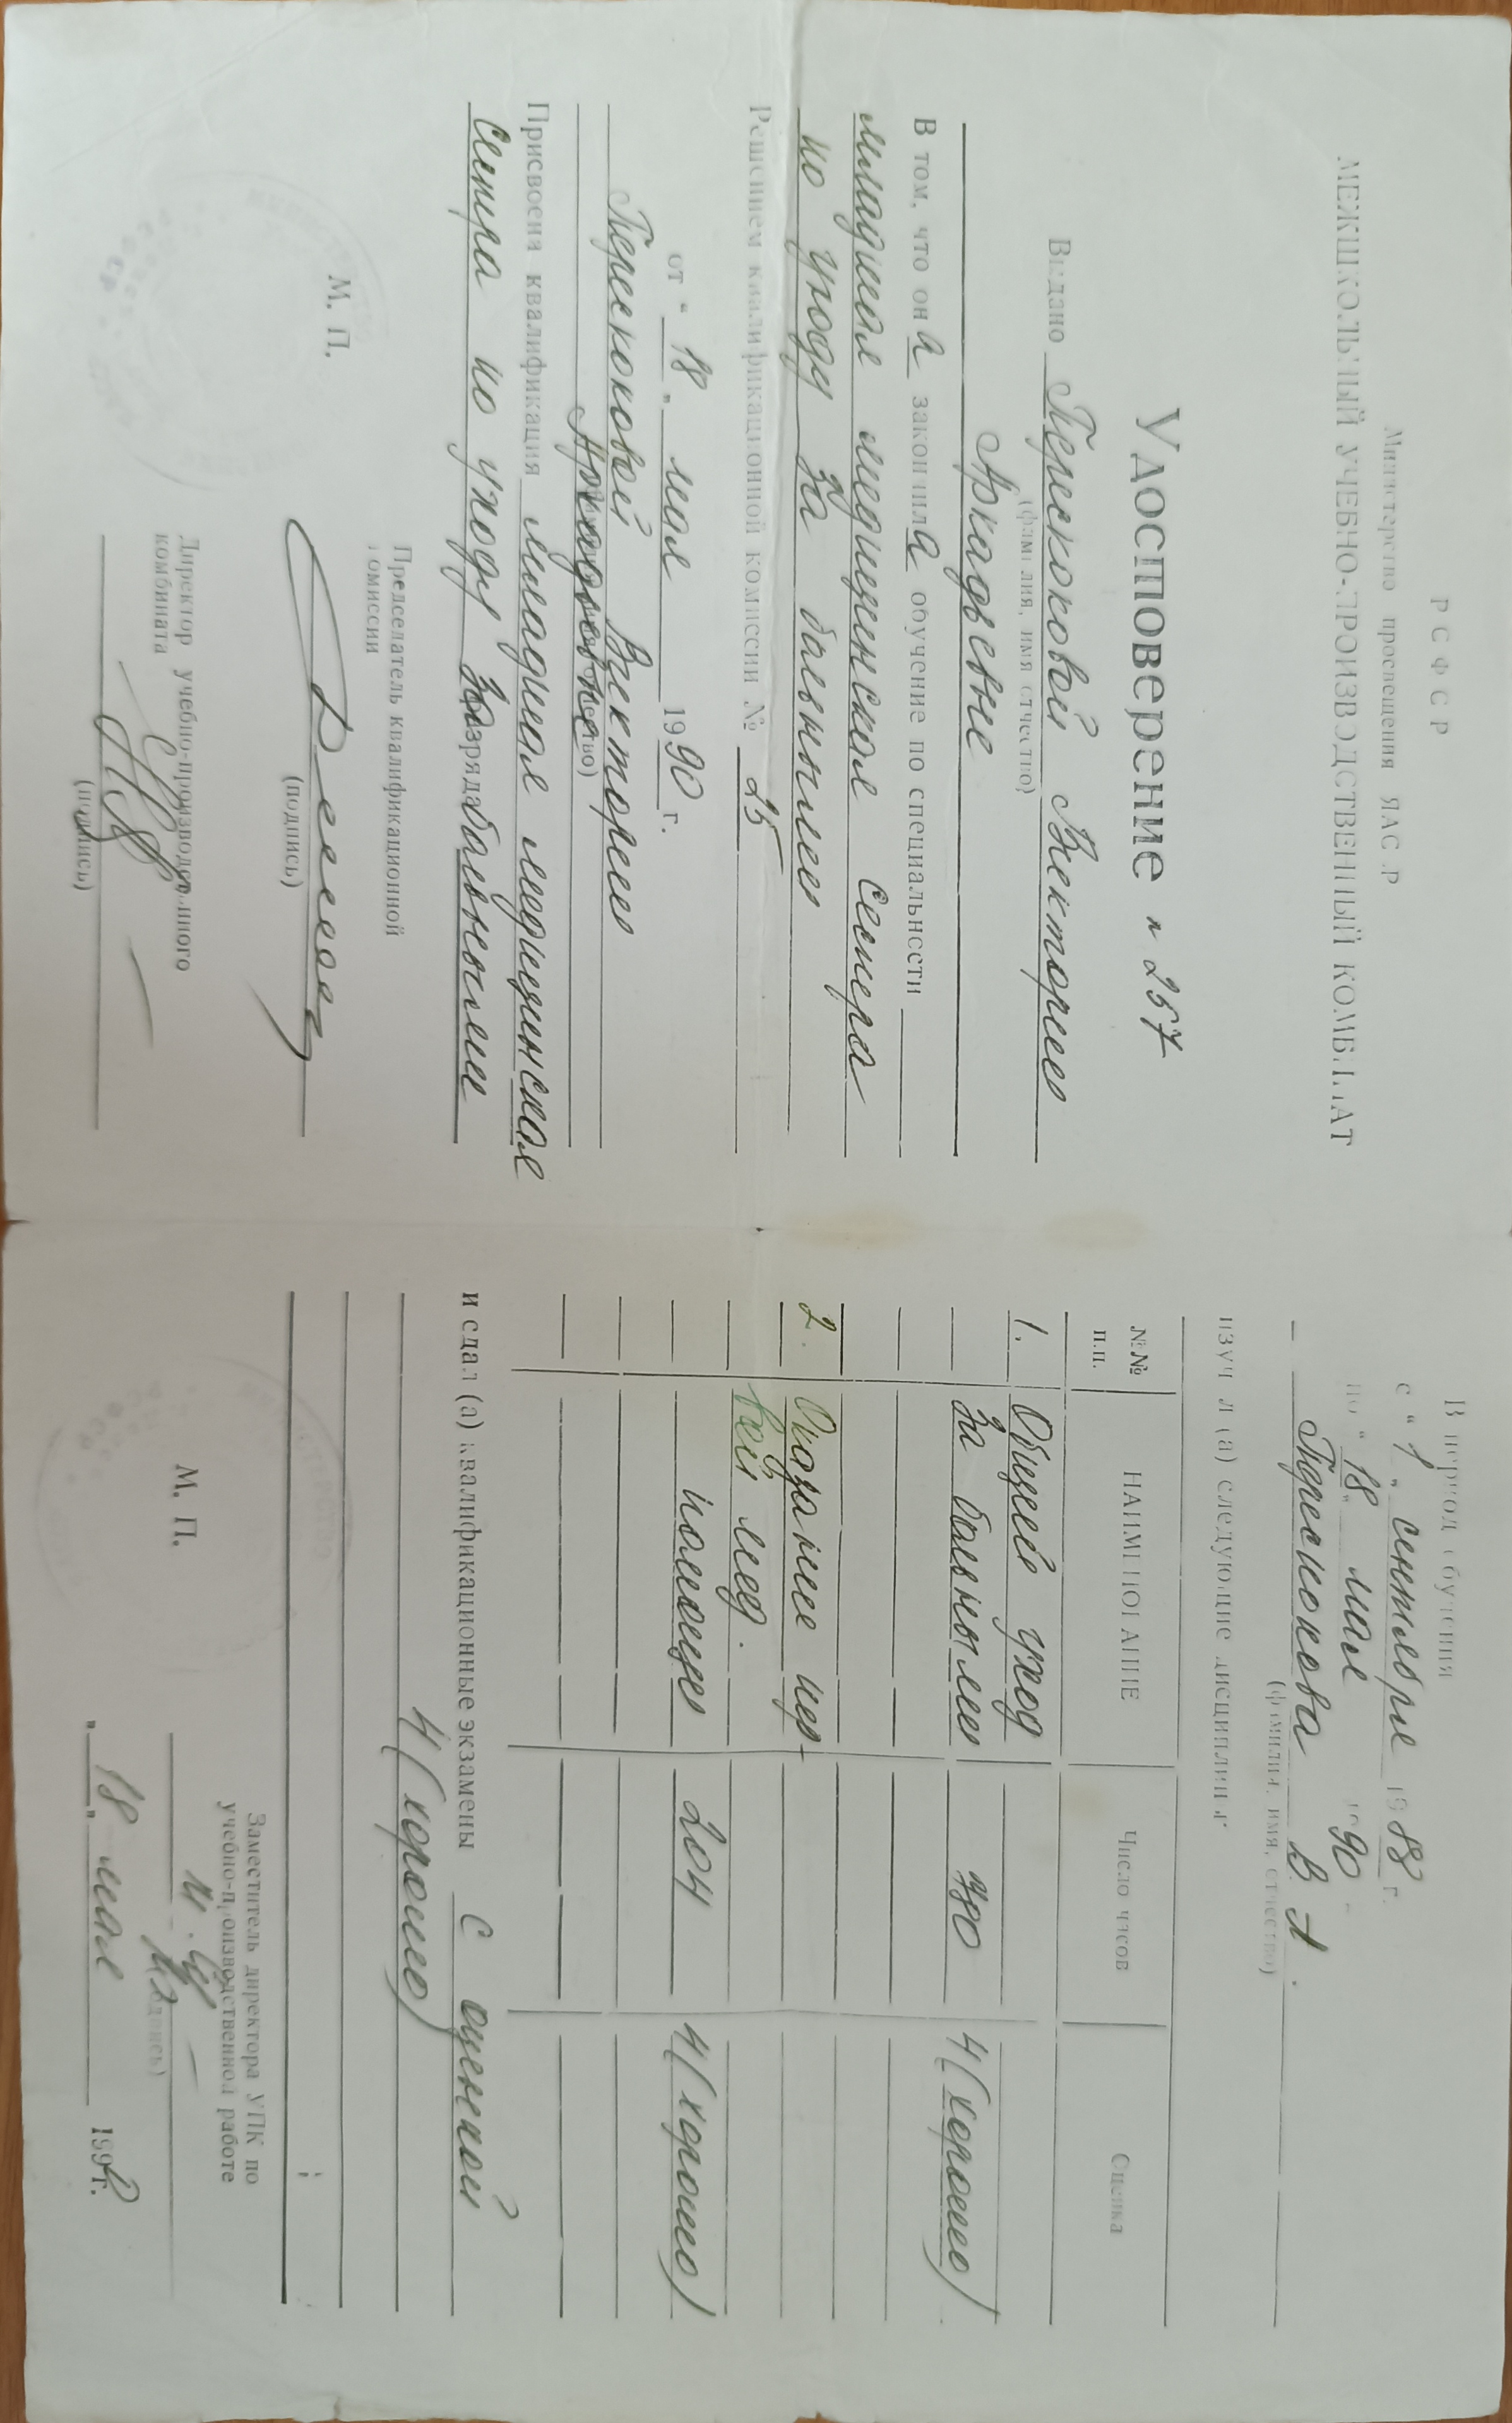 РСФСР
Министерство просвещения ЯАССР
МЕЖШКОЛЬНЫЙ УЧЕБНО-ПРОИЗВОДСТВЕННЫЙ КОМБИНАТ
Удостоверение № 257
Выдано Пересюковой Виктории
(фамилия, имя отчество)
Аркадьевне
В том, что она закончила обучение по специальности
младшая медицинская сестра
по уходу за больными
Решением квалификационной комиссии № 25
от „18„ мая 1990 г.
Виктории
Аркадьевне
Присвоена квалификация младшая медицинская
сестра по уходу за разряда больными
Председатель квалификационной
комиссии
(подпись)
М. П.
Директор учебно-производственного
комбината
(подпись)
В период обучения
с "1„ сентября 1988 г.
по "18„ мая 1990 г.
В. А.
(фамилия, имя, отчество)
изучил (а) следующие дисциплины
№№ п.п. НАИМЕНОВАНИЕ Число часов Оценка
1. Общий уход
за больными 4(хорошо)
2. Оказание пер-
вой мед.
помощи 204 4(хорошо)
и сдал (а) квалификационные экзамены с оценкой
4(хорошо)
Заместитель директора УПК по
учебно-производственной работе
(подпись)
М. П.
„18„ мая 1990г.